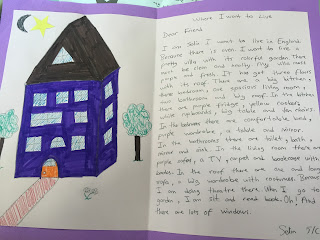 Where I want to Live
Dear Friend
I am Selin. I want to live in England.
Because there is even. I want to live a
pretty villa with its colorful garden. There
must be clean and healthy. My villa must
purple and fresh. It has got three floors
with its roof. There are a big kitchen,
three bedroom, one spacious living room,
two bathrooms and big roof. In the kitchen
there are purple fridge, yellow cooker,
white cupboards, big table and ten chairs.
In the bedrooms there are comfortable bed,
purple wardrobe, a table and mirror.
In the bathrooms there are toilet, bath,
mirror and sink. In the living room there are
purple sofas, a TV, carpet and bookcase with
books. In the roof there are one and long
sofa, a big wardrobe with costumes. Because
I am doing theatre there. When I go to
garden, I am sit and read book. Oh! And
there are lots of windows.
Selin 5/C